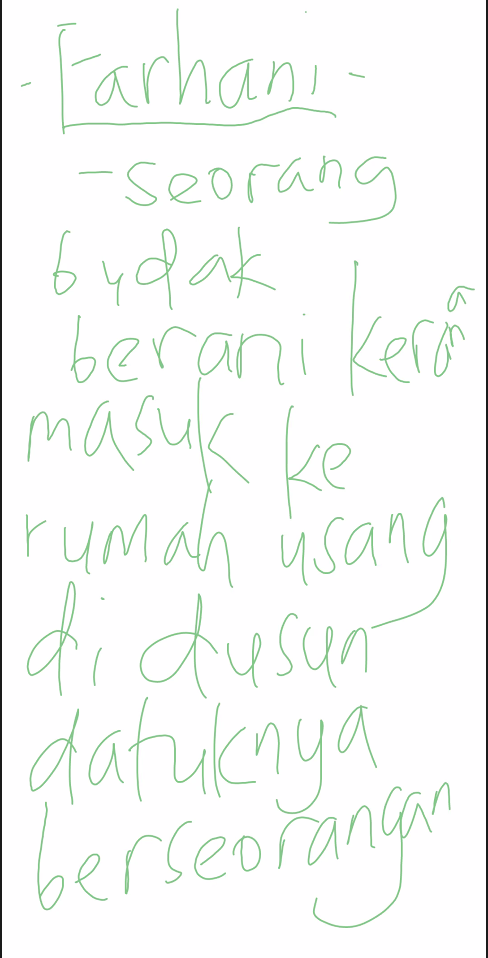 - Farhani -
- seorang
budak
berani kerana
masuk ke
rumah usang
di dusun
datuknya
berseorangan